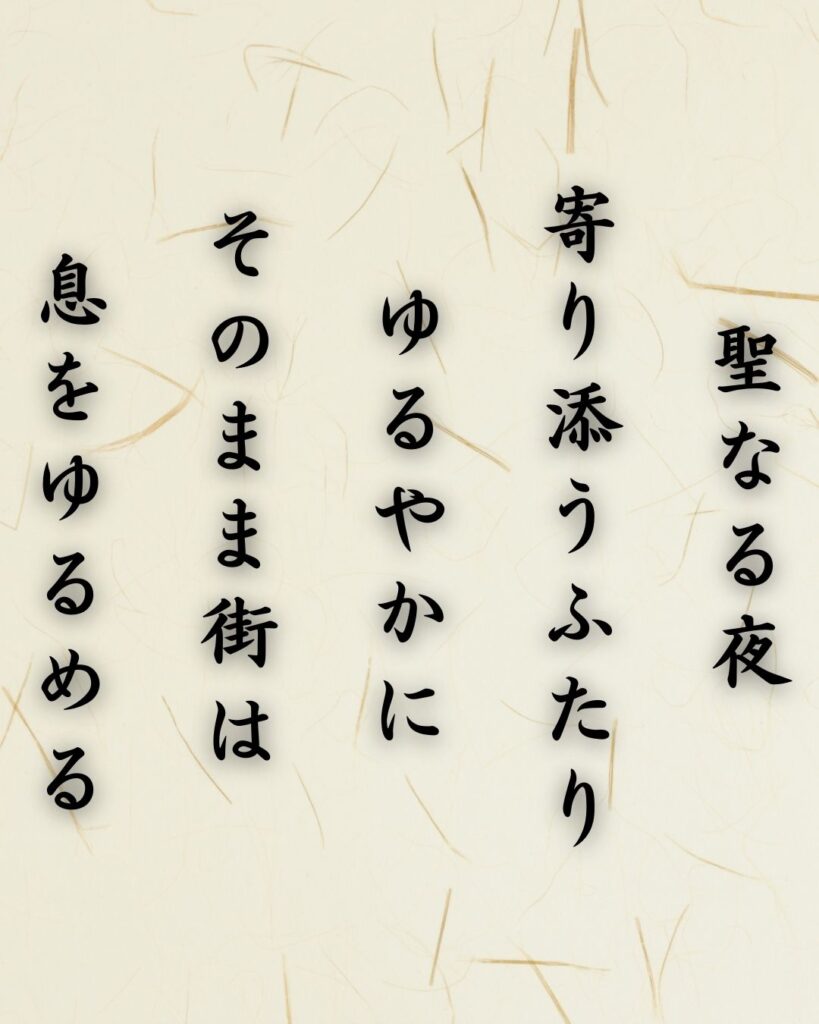 聖なる夜
寄り添うふたり
ゆるやかに
そのまま街は
息をゆるめる